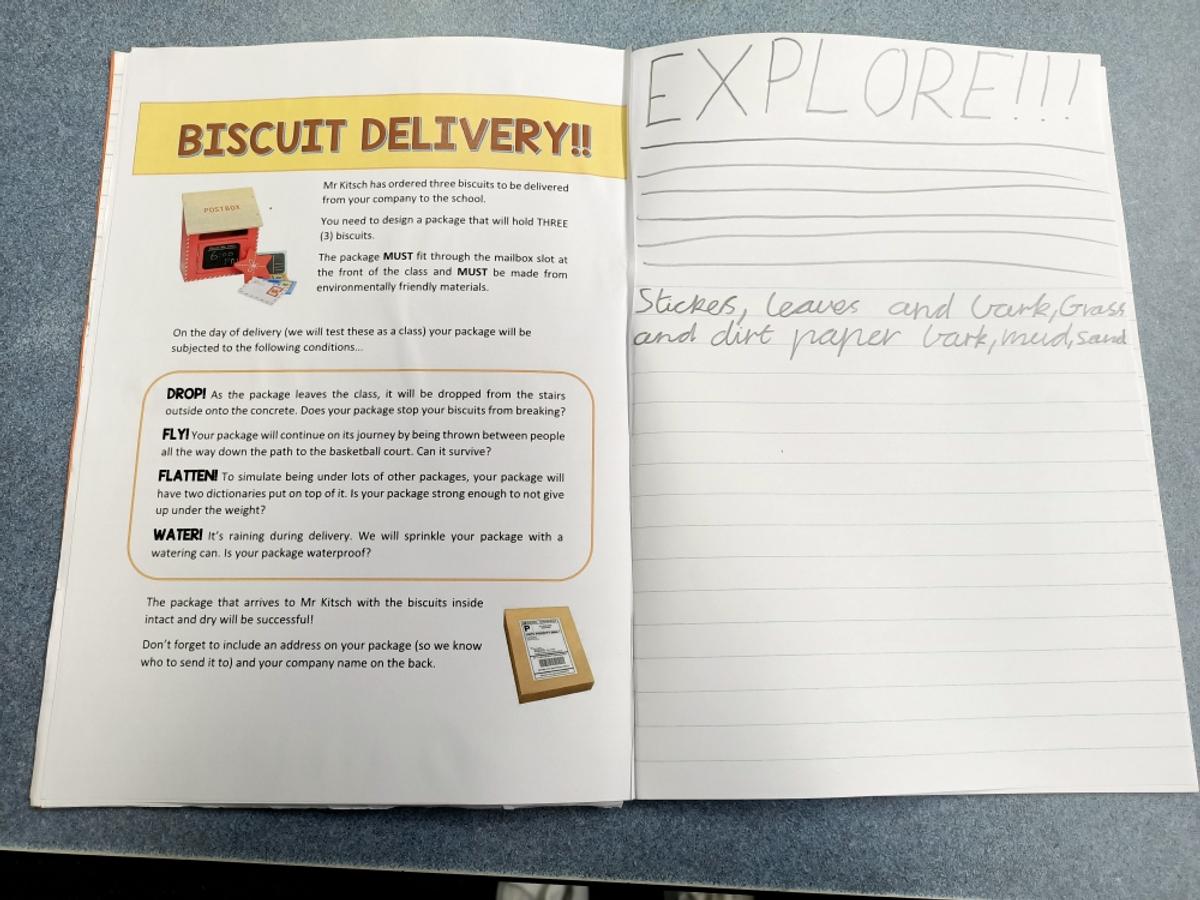 BISCUIT DELIVERY!!
POSTBOX
Mr Kitsch has ordered three biscuits to be delivered
from your company to the school.
You need to design a package that will hold THREE
(3) biscuits.
The package MUST fit through the mailbox slot at
the front of the class and MUST be made from
environmentally friendly materials.
On the day of delivery (we will test these as a class) your package will be
subjected to the following conditions...
DROP! As the package leaves the class, it will be dropped from the stairs
outside onto the concrete. Does your package stop your biscuits from breaking?
FLY! Your package will continue on its journey by being thrown between people
all the way down the path to the basketball court. Can it survive?
FLATTEN! To simulate being under lots of other packages, your package will
have two dictionaries put on top of it. Is your package strong enough to not give
up under the weight?
WATER! It's raining during delivery. We will sprinkle your package with a
watering can. Is your package waterproof?
The package that arrives to Mr Kitsch with the biscuits inside
intact and dry will be successful!
Don't forget to include an address on your package (so we know
who to send it to) and your company name on the back.
P
EXPLORE!!!
Stickes, leaves and bark, Grass
and dirt paper bark, mud, sand